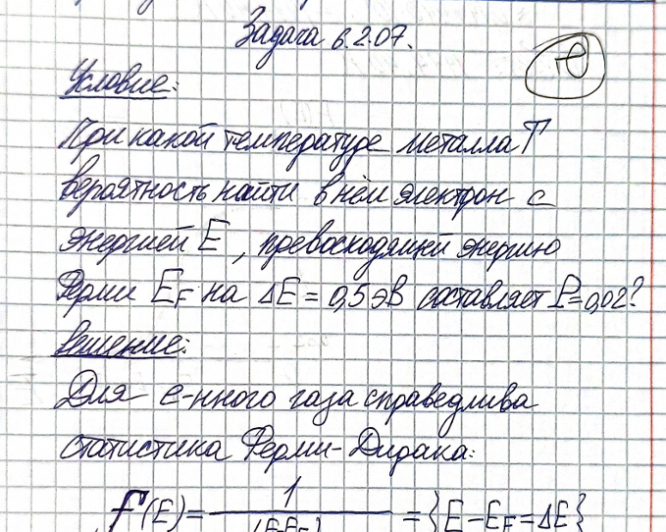 Задача 6.2.07.
Условие:
При какой температуре металла T
вероятность найти в нём электрон с
энергией E, превосходящей энергию
Ферми E_F на ΔE = 0,5 эВ составляет P=0,02?
Решение:
Для е-нного газа справедлива
статистика Ферми-Дирака:
f(E) = 1 / = {E - E_F = ΔE}